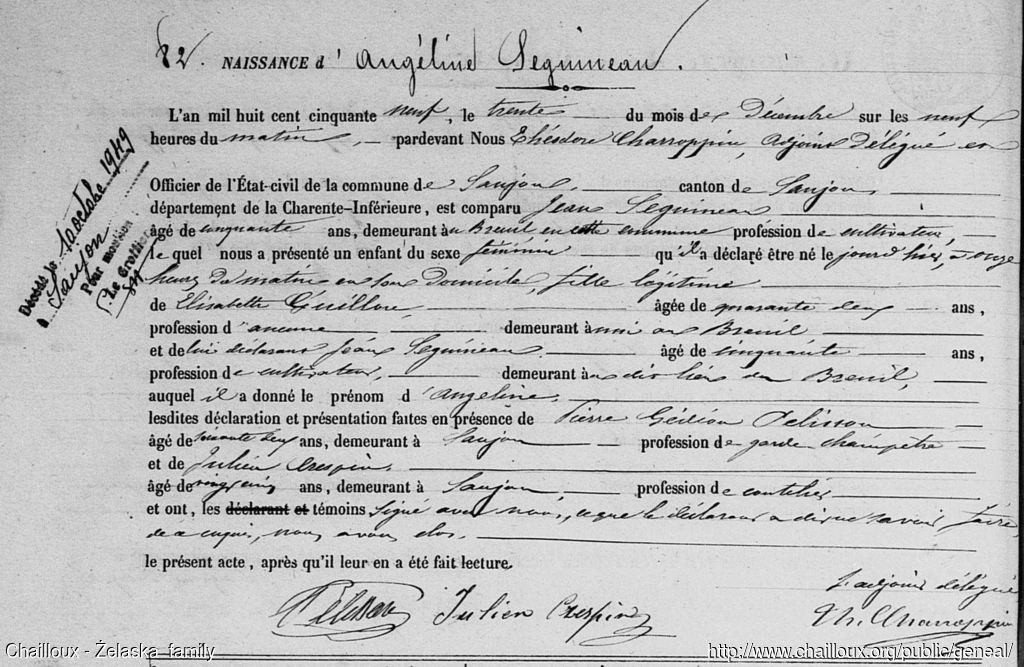 82. NAISSANCE d'Angéline Seguineau.
L'an mil huit cent cinquante neuf, le trente du mois de Décembre sur les neuf
heures du matin, pardevant Nous Théodore Charroppin, Adjoint Délégué
Officier de l'État-civil de la commune de Saujon, canton de Saujon,
département de la Charente-Inférieure, est comparu Jean Seguineau
âgé de cinquante ans, demeurant au Breuil en cette commune profession de cultivateur,
le quel nous a présenté un enfant du sexe féminin qu'il a déclaré être né le jour d'hier, à onze
heures du matin en son domicile, fille légitime
de Elisabeth Guillon, âgée de quarante deux ans,
profession d'aucune demeurant au Breuil
et de lui déclarant Jean Seguineau, âgé de cinquante ans,
profession de cultivateur, demeurant au dit lieu du Breuil,
auquel il a donné le prénom d'Angeline,
lesdites déclaration et présentation faites en présence de Pierre Gédéon Pelisson
âgé de soixante deux ans, demeurant à Saujon profession de garde champêtre
et de Julien Crespin,
âgé de vingt cinq ans, demeurant à Saujon, profession de coutelier
et ont, les déclarant et témoins signé avec nous, ce que le déclarant a dit ne savoir faire,
de ce enquis, nous avons clos.
le présent acte, après qu'il leur en a été fait lecture.
Pelisson Julien Crespin
L'adjoint délégué
Th. Charroppin
Décédée
à Saujon
10 octobre 1949
Pour mention
Le Greffier
Chailloux - Żelaska family
http://www.chailloux.org/public/geneal/